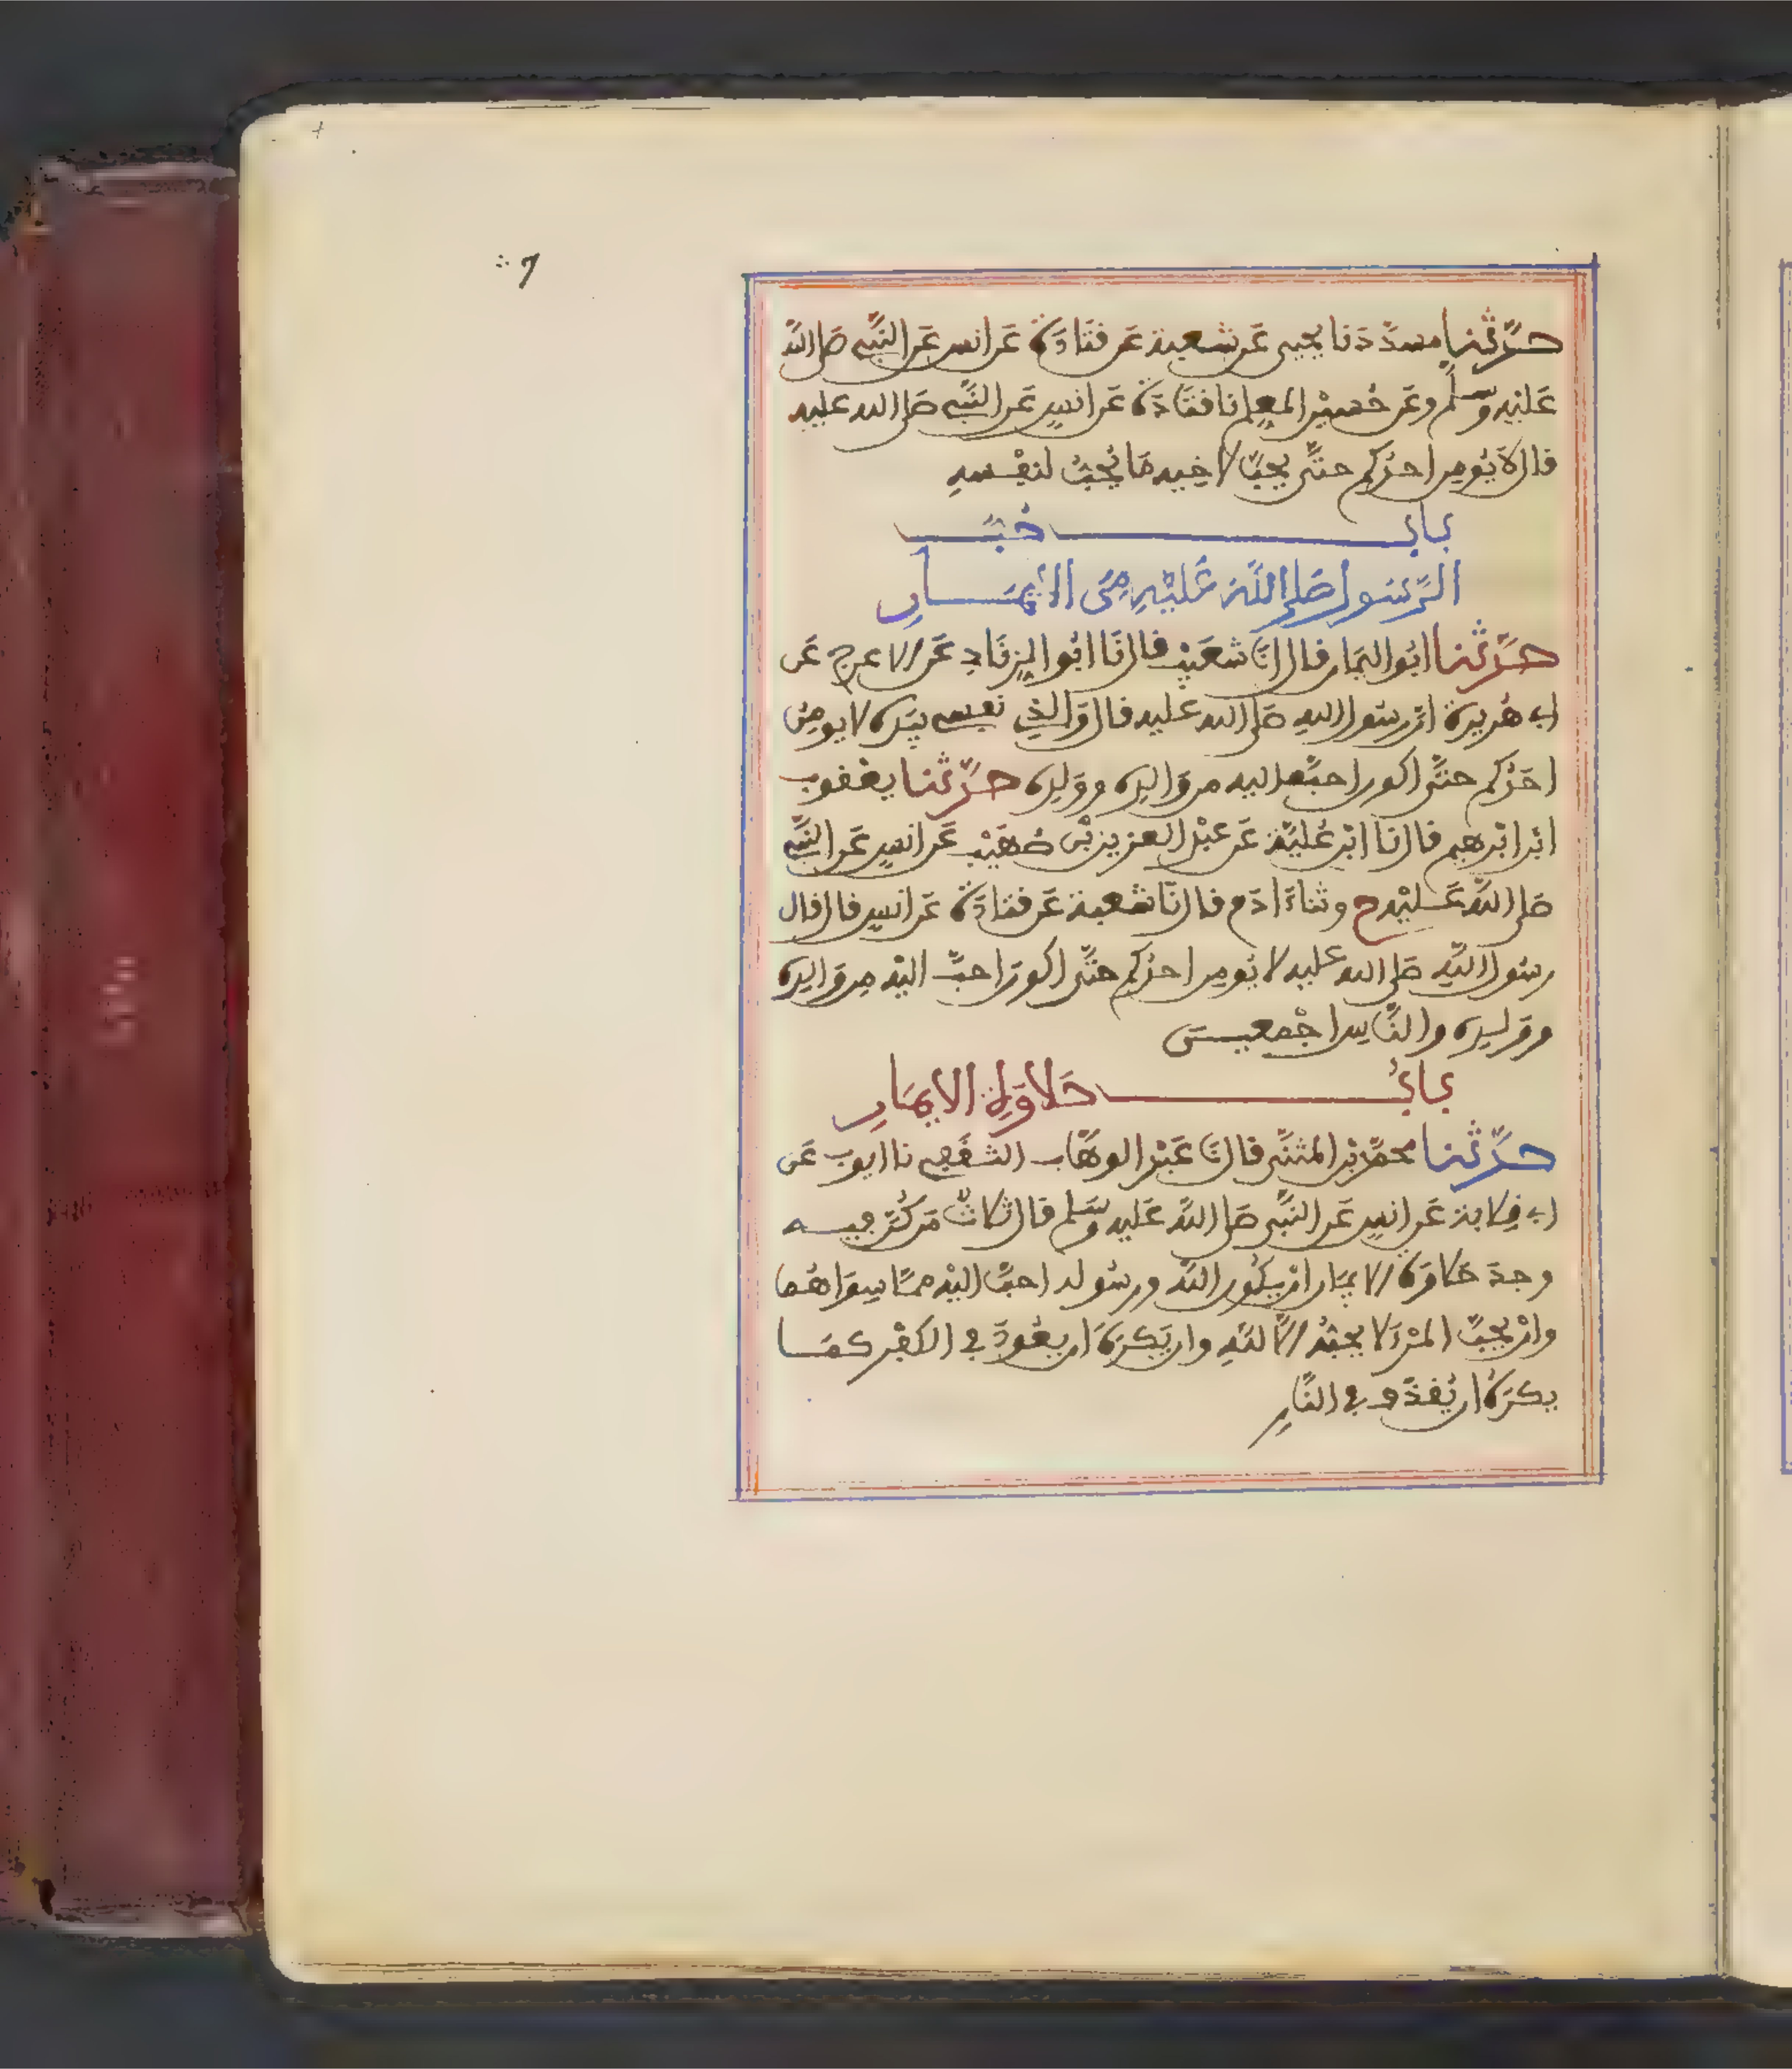 حدّثنا مسدّد نا يحيى عن شعبة عن قتادة عن انس عن النّبي صلى الله
عليه وسلّم وعن حُسين المعلم نا قتادة عن انس عن النّبي صلى الله عليه
قال لا يُومن احدُكم حتّى يحبّ لاخيه ما يُحبّ لنفسه
بابُ حُبّ
الرّسول صلى الله عَلَيْهِ مِنَ الايمان
حدّثنا ابو اليمان قال انا شعَيْب قال نا ابُو الزناد عن الاعرج عن
ابي هُريرة انّ رسول الله صلى الله عليه قال والذي نفسي بيَده لا يومِنُ
احدُكم حتّى اكون احبّ اليه من والِده ووَلِده حدّثنا يعقوب
ابن ابْرهيم قال نا ابْن عُليّة عن عبْد العزيز بْن صُهَيْب عن انس عن النّبي
صلى الله عَليْه ح وثنا ءادم قال نا شعبة عن قتادة عن انس قال قال
رسول الله صلى الله عليه لا يُومن احدُكم حتّى اكون احبّ اليْه مِن والِده
ووَلده والنّاس اجْمعين
بابُ حَلاوَة الايمَان
حدّثنا محمّد بْن المثنّى قال نا عَبْد الوهّاب الثقَفي نا ايوب عن
ابي قِلابة عن انس عن النّبي صلى الله عَليه وسَلّم قال ثلاثٌ مَن كُنّ فيه
وجدَ حَلاوَة الايمَان انْ يكُون الله ورسُوله احبّ اليْه ممّا سِوَاهُما
وانْ يحبّ المرْءَ لا يحبّهُ الّا لله وان يَكرَه اَن يعُودَ في الكفْر كمَا
يكرَهُ ان يُقذَف في النّارِ